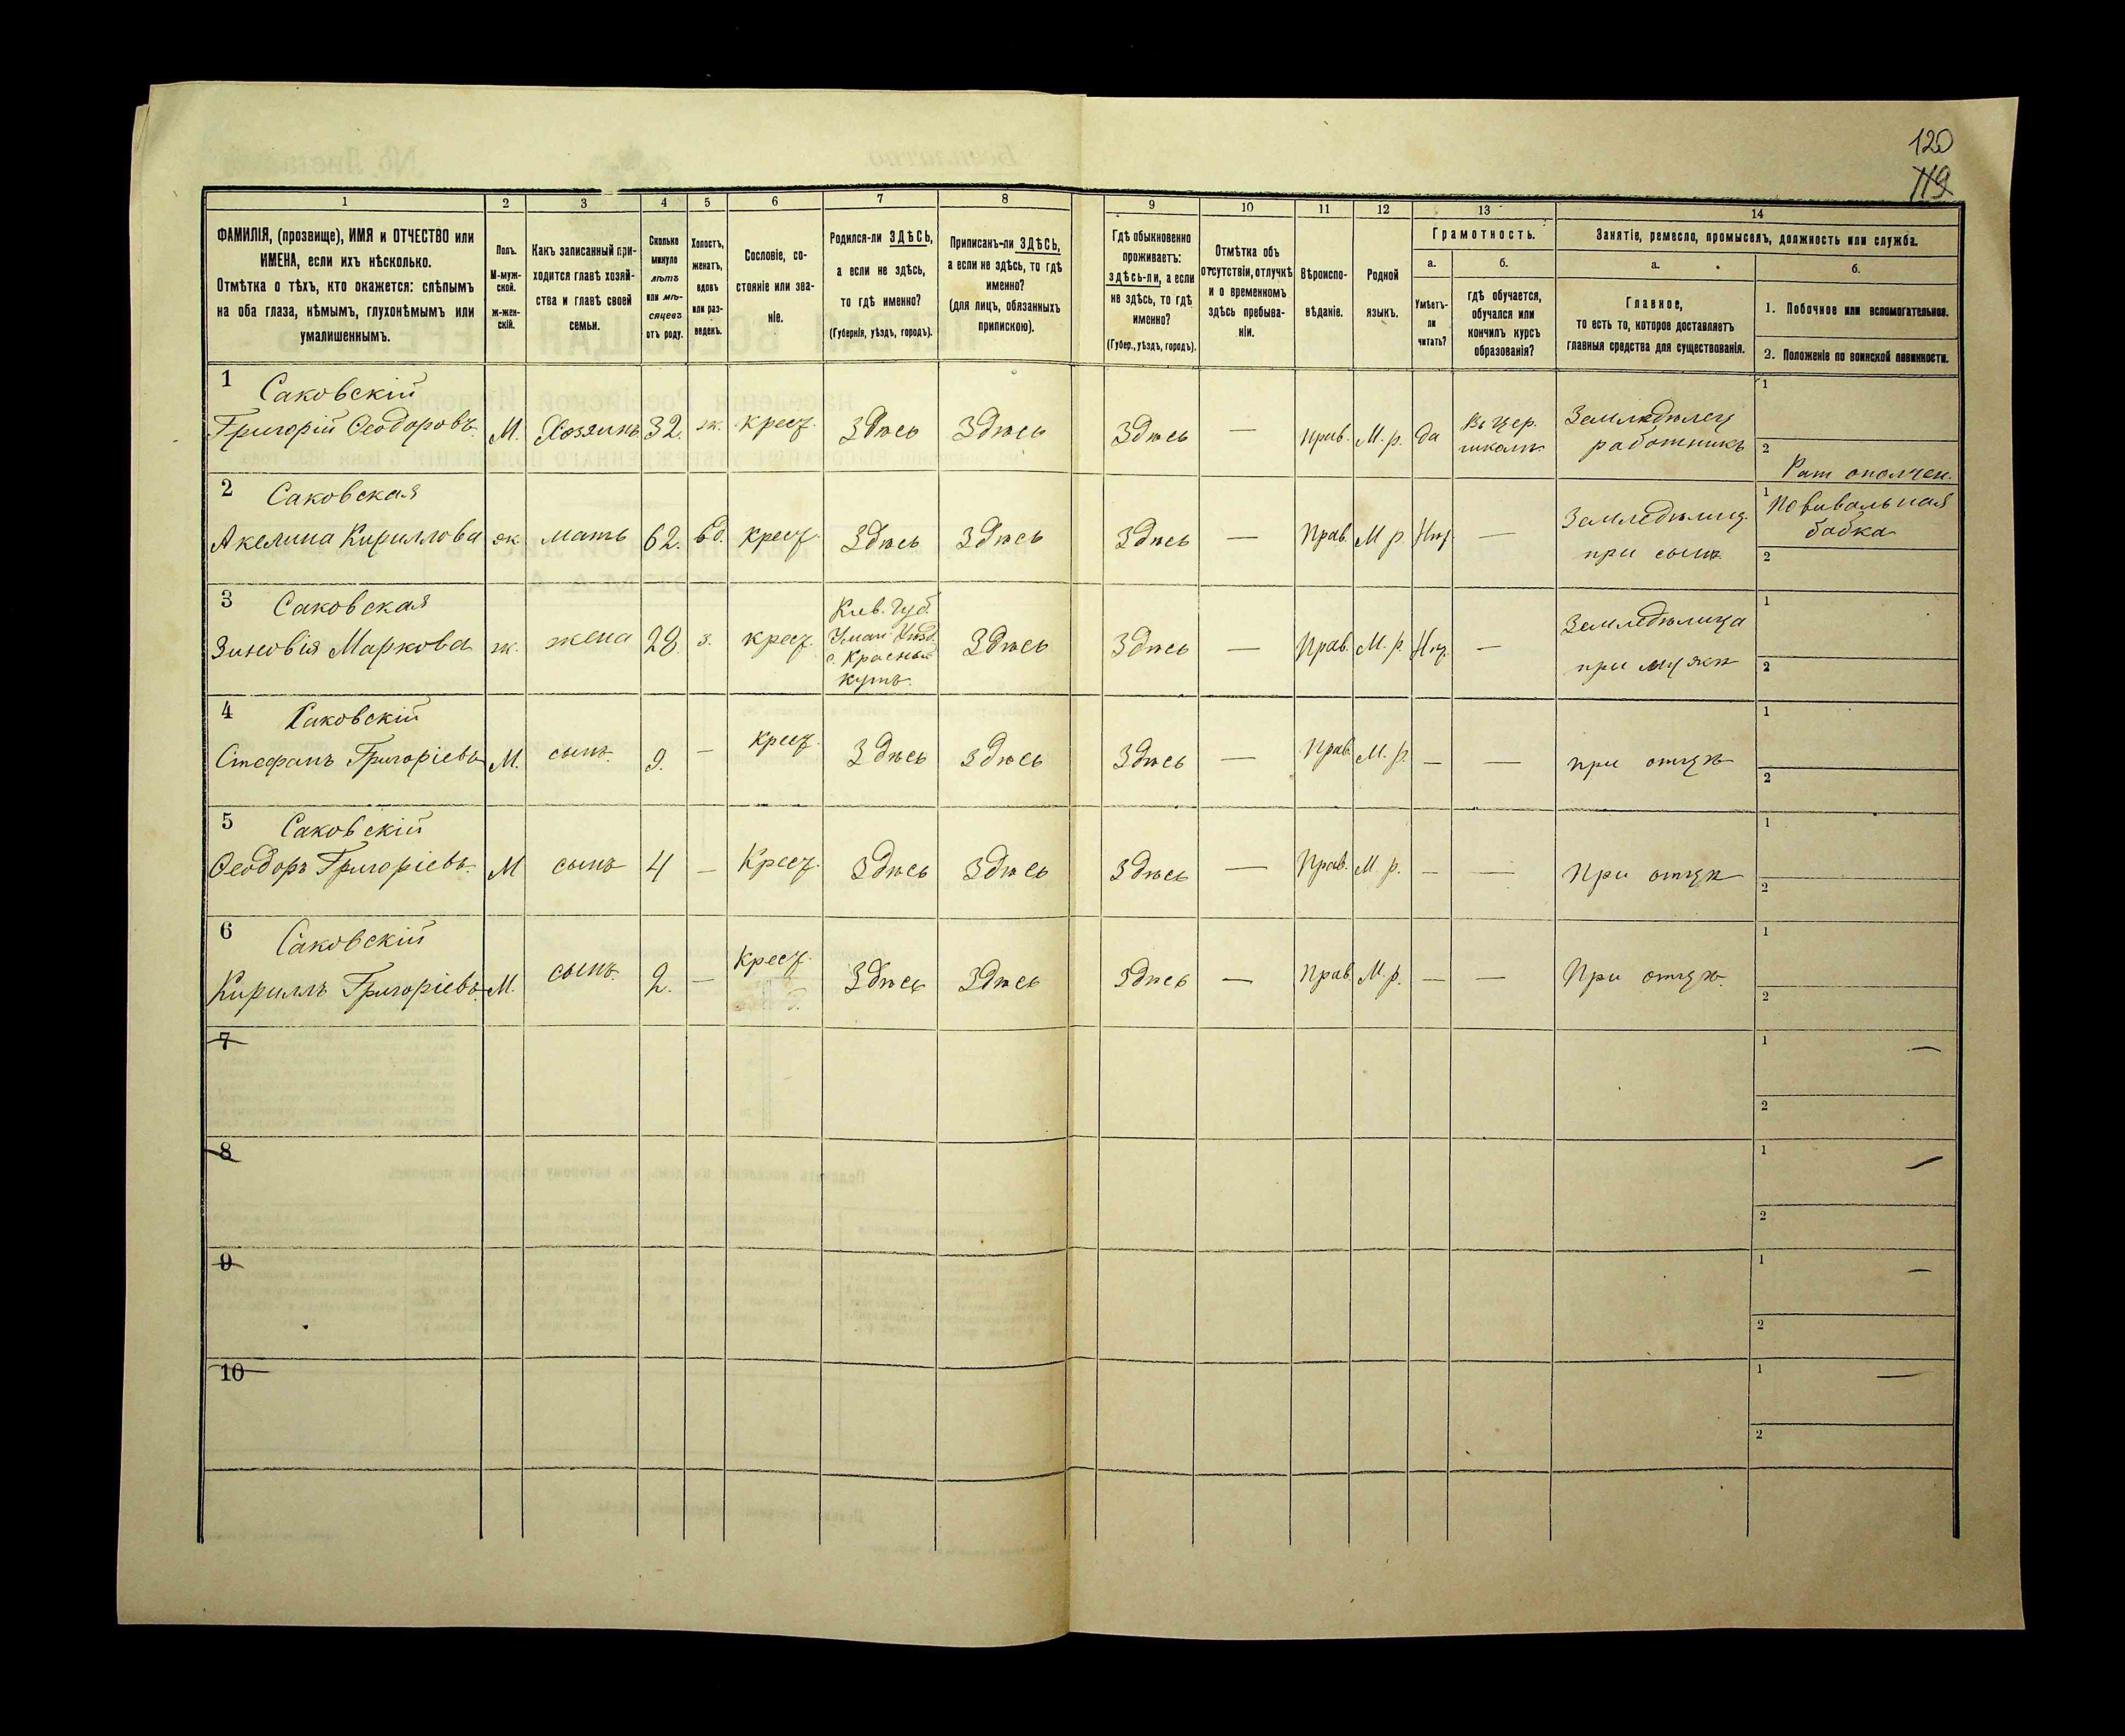 120
119
1 2 3 4 5 6 7 8 9 10 11 12 13 14
ФАМИЛІЯ, (прозвище), ИМЯ и ОТЧЕСТВО или
ИМЕНА, если ихъ нѣсколько.
Отмѣтка о тѣхъ, кто окажется: слѣпымъ
на оба глаза, нѣмымъ, глухонѣмымъ или
умалишеннымъ.
Полъ.
М-муж-
ской.
ж-жен-
скій.
Какъ записанный при-
ходится главѣ хозяй-
ства и главѣ своей
семьи.
Сколько
минуло
лѣтъ
или мѣ-
сяцевъ
отъ роду.
Холостъ,
женатъ,
вдовъ
или раз-
веденъ.
Сословіе, со-
стояніе или зва-
ніе.
Родился-ли ЗДѢСЬ,
а если не здѣсь,
то гдѣ именно?
(Губернія, уѣздъ, городъ).
Приписанъ-ли ЗДѢСЬ,
а если не здѣсь, то гдѣ
именно?
(для лицъ, обязанныхъ
припискою).
Гдѣ обыкновенно
проживаетъ:
здѣсь-ли, а если
не здѣсь, то гдѣ
именно?
(Губер., уѣздъ, городъ).
Отмѣтка объ
отсутствіи, отлучкѣ
и о временномъ
здѣсь пребыва-
ніи.
Вѣроиспо-
вѣданіе.
Родной
языкъ.
Грамотность.
а.
Умѣетъ-
ли
читать?
б.
гдѣ обучается,
обучался или
кончилъ курсъ
образованія?
Занятіе, ремесло, промыселъ, должность или служба.
а.
Главное,
то есть то, которое доставляетъ
главныя средства для существованія.
б.
1. Побочное или вспомогательное.
2. Положеніе по воинской повинности.
1 Саковскій
Григорій Ѳеодоровъ. М. Хозяинъ 32. ж. крест. Здѣсь Здѣсь Здѣсь — Прав. М. р. да
Въ цер.
школѣ
Земледѣлец
работникъ
1
2
Рат ополчен.
2 Саковская
Акелина Кириллова ж мать 62. вд. крест. Здѣсь Здѣсь Здѣсь — Прав. М р. Нѣт —
Земледѣлиц.
при сынѣ
1 Повивальная
бабка
2
3 Саковская
Зиновія Маркова ж. жена 28. з. крест.
Кіев. Губ.
Уман Уѣзд.
с. Красный
кутъ.
Здѣсь Здѣсь — Прав. М. р. Нѣт. —
Земледѣлица
при мужѣ
1
2
4 Саковскій
Стефанъ Григоріевъ М. сынъ. 9. — крест. Здѣсь Здѣсь Здѣсь — Прав. М. р. — — при отцѣ
1
2
5 Саковскій
Ѳеодоръ Григоріевъ. М сынъ 4 — Крест. Здѣсь Здѣсь Здѣсь — Прав. М. р. — — При отцѣ
1
2
6 Саковскій
Кириллъ Григоріевъ М. сынъ. 2. — Крест. Здѣсь Здѣсь Здѣсь — Прав. М. р. — — При отцѣ.
1
2
7
1 —
2
8
1 —
2
9
1 —
2
10
1 —
2